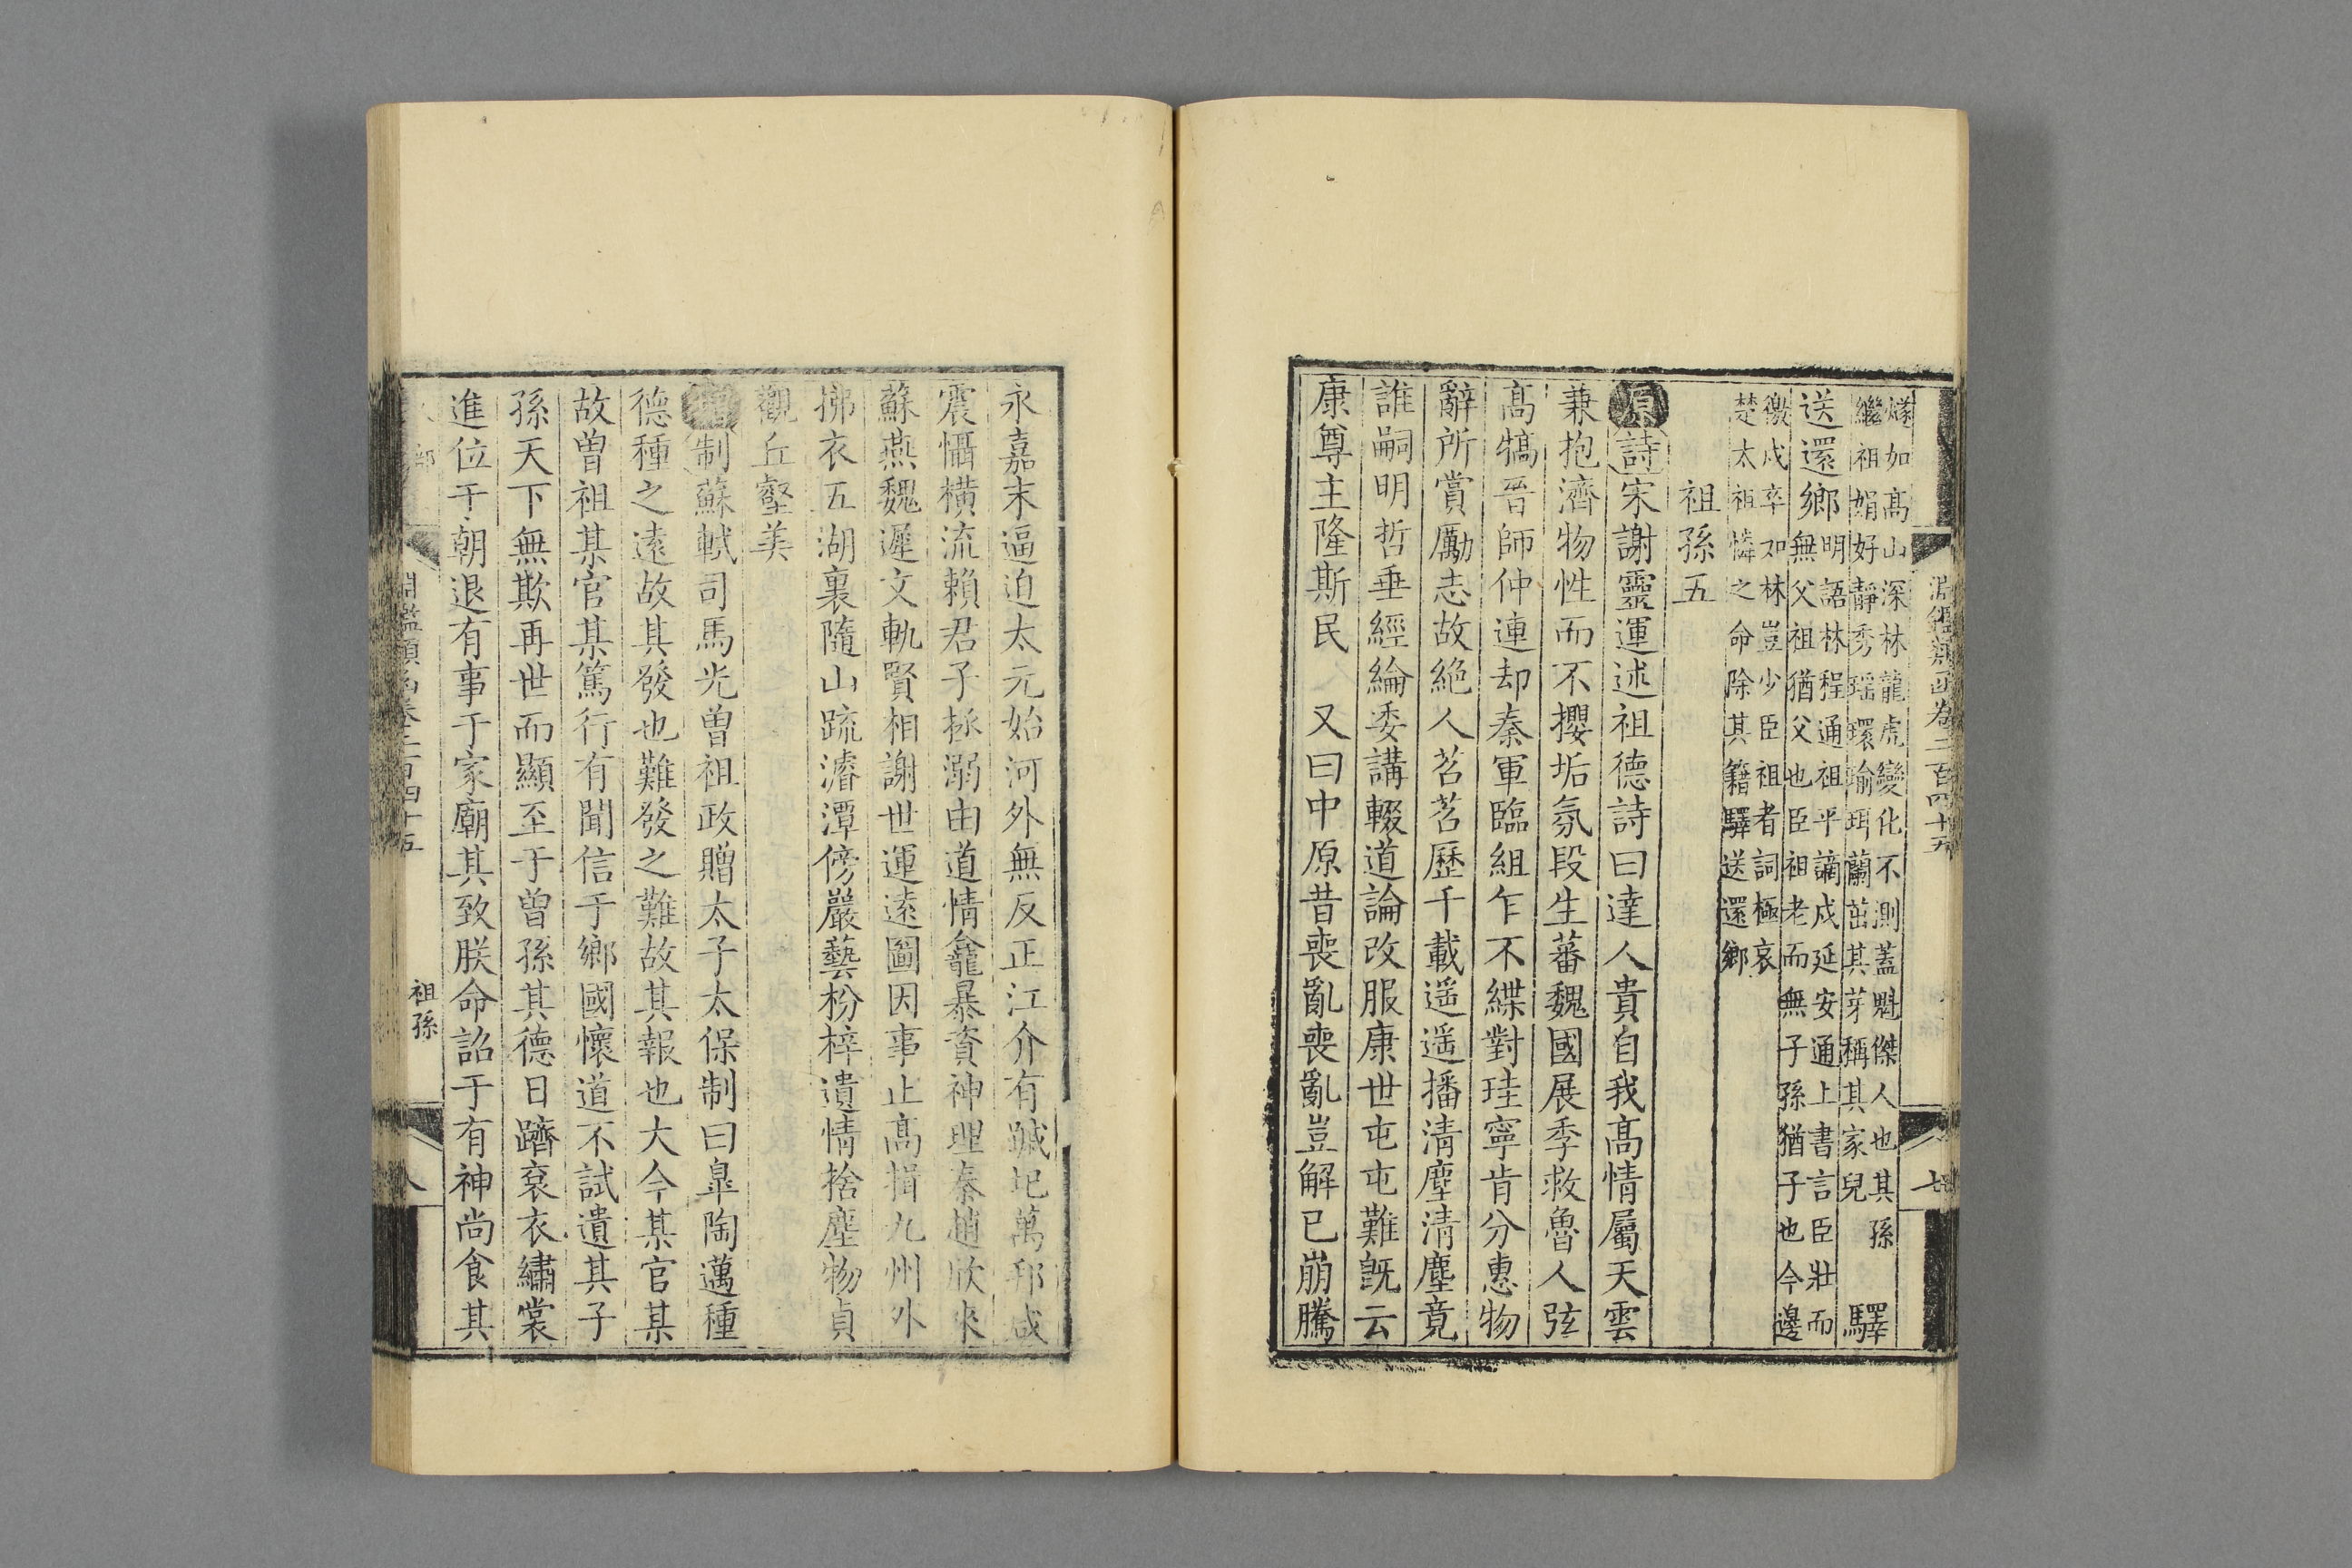 淵鑑類函卷二百四十五
七
燧如髙山深林龍虎變化不測蓋魁傑人也其孫
繼祖娟好靜秀瑶環瑜珥蘭茁其芽稱其家兒
驛
送還鄉
明語林程通祖平謫戍延安通上書言臣壯而
無父祖猶父也臣祖老而無子孫猶子也今邊
繳戍卒如林豈少臣祖者詞極哀
楚太祖憐之命除其籍驛送還鄉
祖孫五
原詩宋謝靈運述祖德詩曰達人貴自我髙情屬天雲
兼抱濟物性而不攖垢氛段生蕃魏國展季救魯人弦
髙犒晉師仲連却秦軍臨組乍不緤對珪寧肯分惠物
辭所賞勵志故絶人苕苕歷千載遥遥播清塵清塵竟
誰嗣明哲垂經綸委講輟道論改服康世屯屯難旣云
康尊主隆斯民 又曰中原昔喪亂喪亂豈解已崩騰
永嘉末逼迫太元始河外無反正江介有蹴圯萬邦咸
震懾橫流賴君子拯溺由道情龕暴資神理秦趙欣來
蘇燕魏遲文軌賢相謝世運逺圖因事止髙揖九州外
拂衣五湖裏隨山疏濬潭傍巖藝枌梓遺情捨塵物貞
觀丘壑美
增制蘇軾司馬光曾祖政贈太子太保制曰臯陶邁種
德種之逺故其發也難發之難故其報也大今某官某
故曾祖某官某篤行有聞信于鄉國懷道不試遺其子
孫天下無欺再世而顯至于曾孫其德日躋衮衣繡裳
進位于朝退有事于家廟其致朕命詔于有神尚食其
人部
淵鑑類函卷二百四十五
祖孫
八